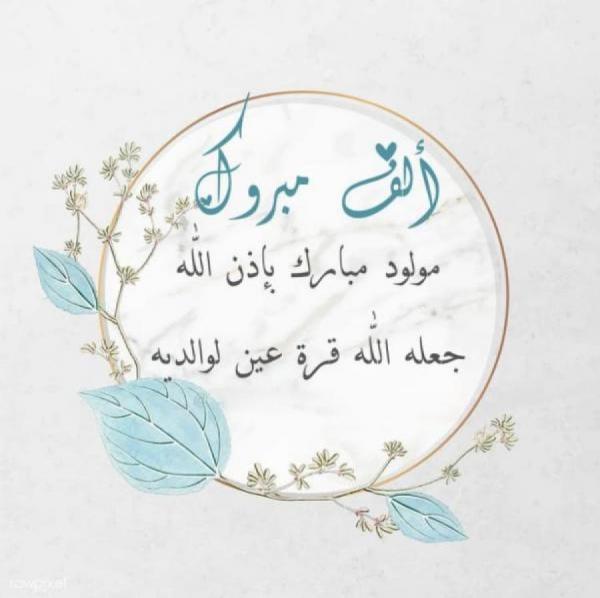 ألف مبروك
مولود مبارك بإذن الله
جعله الله قرة عين لوالديه
rawpixel